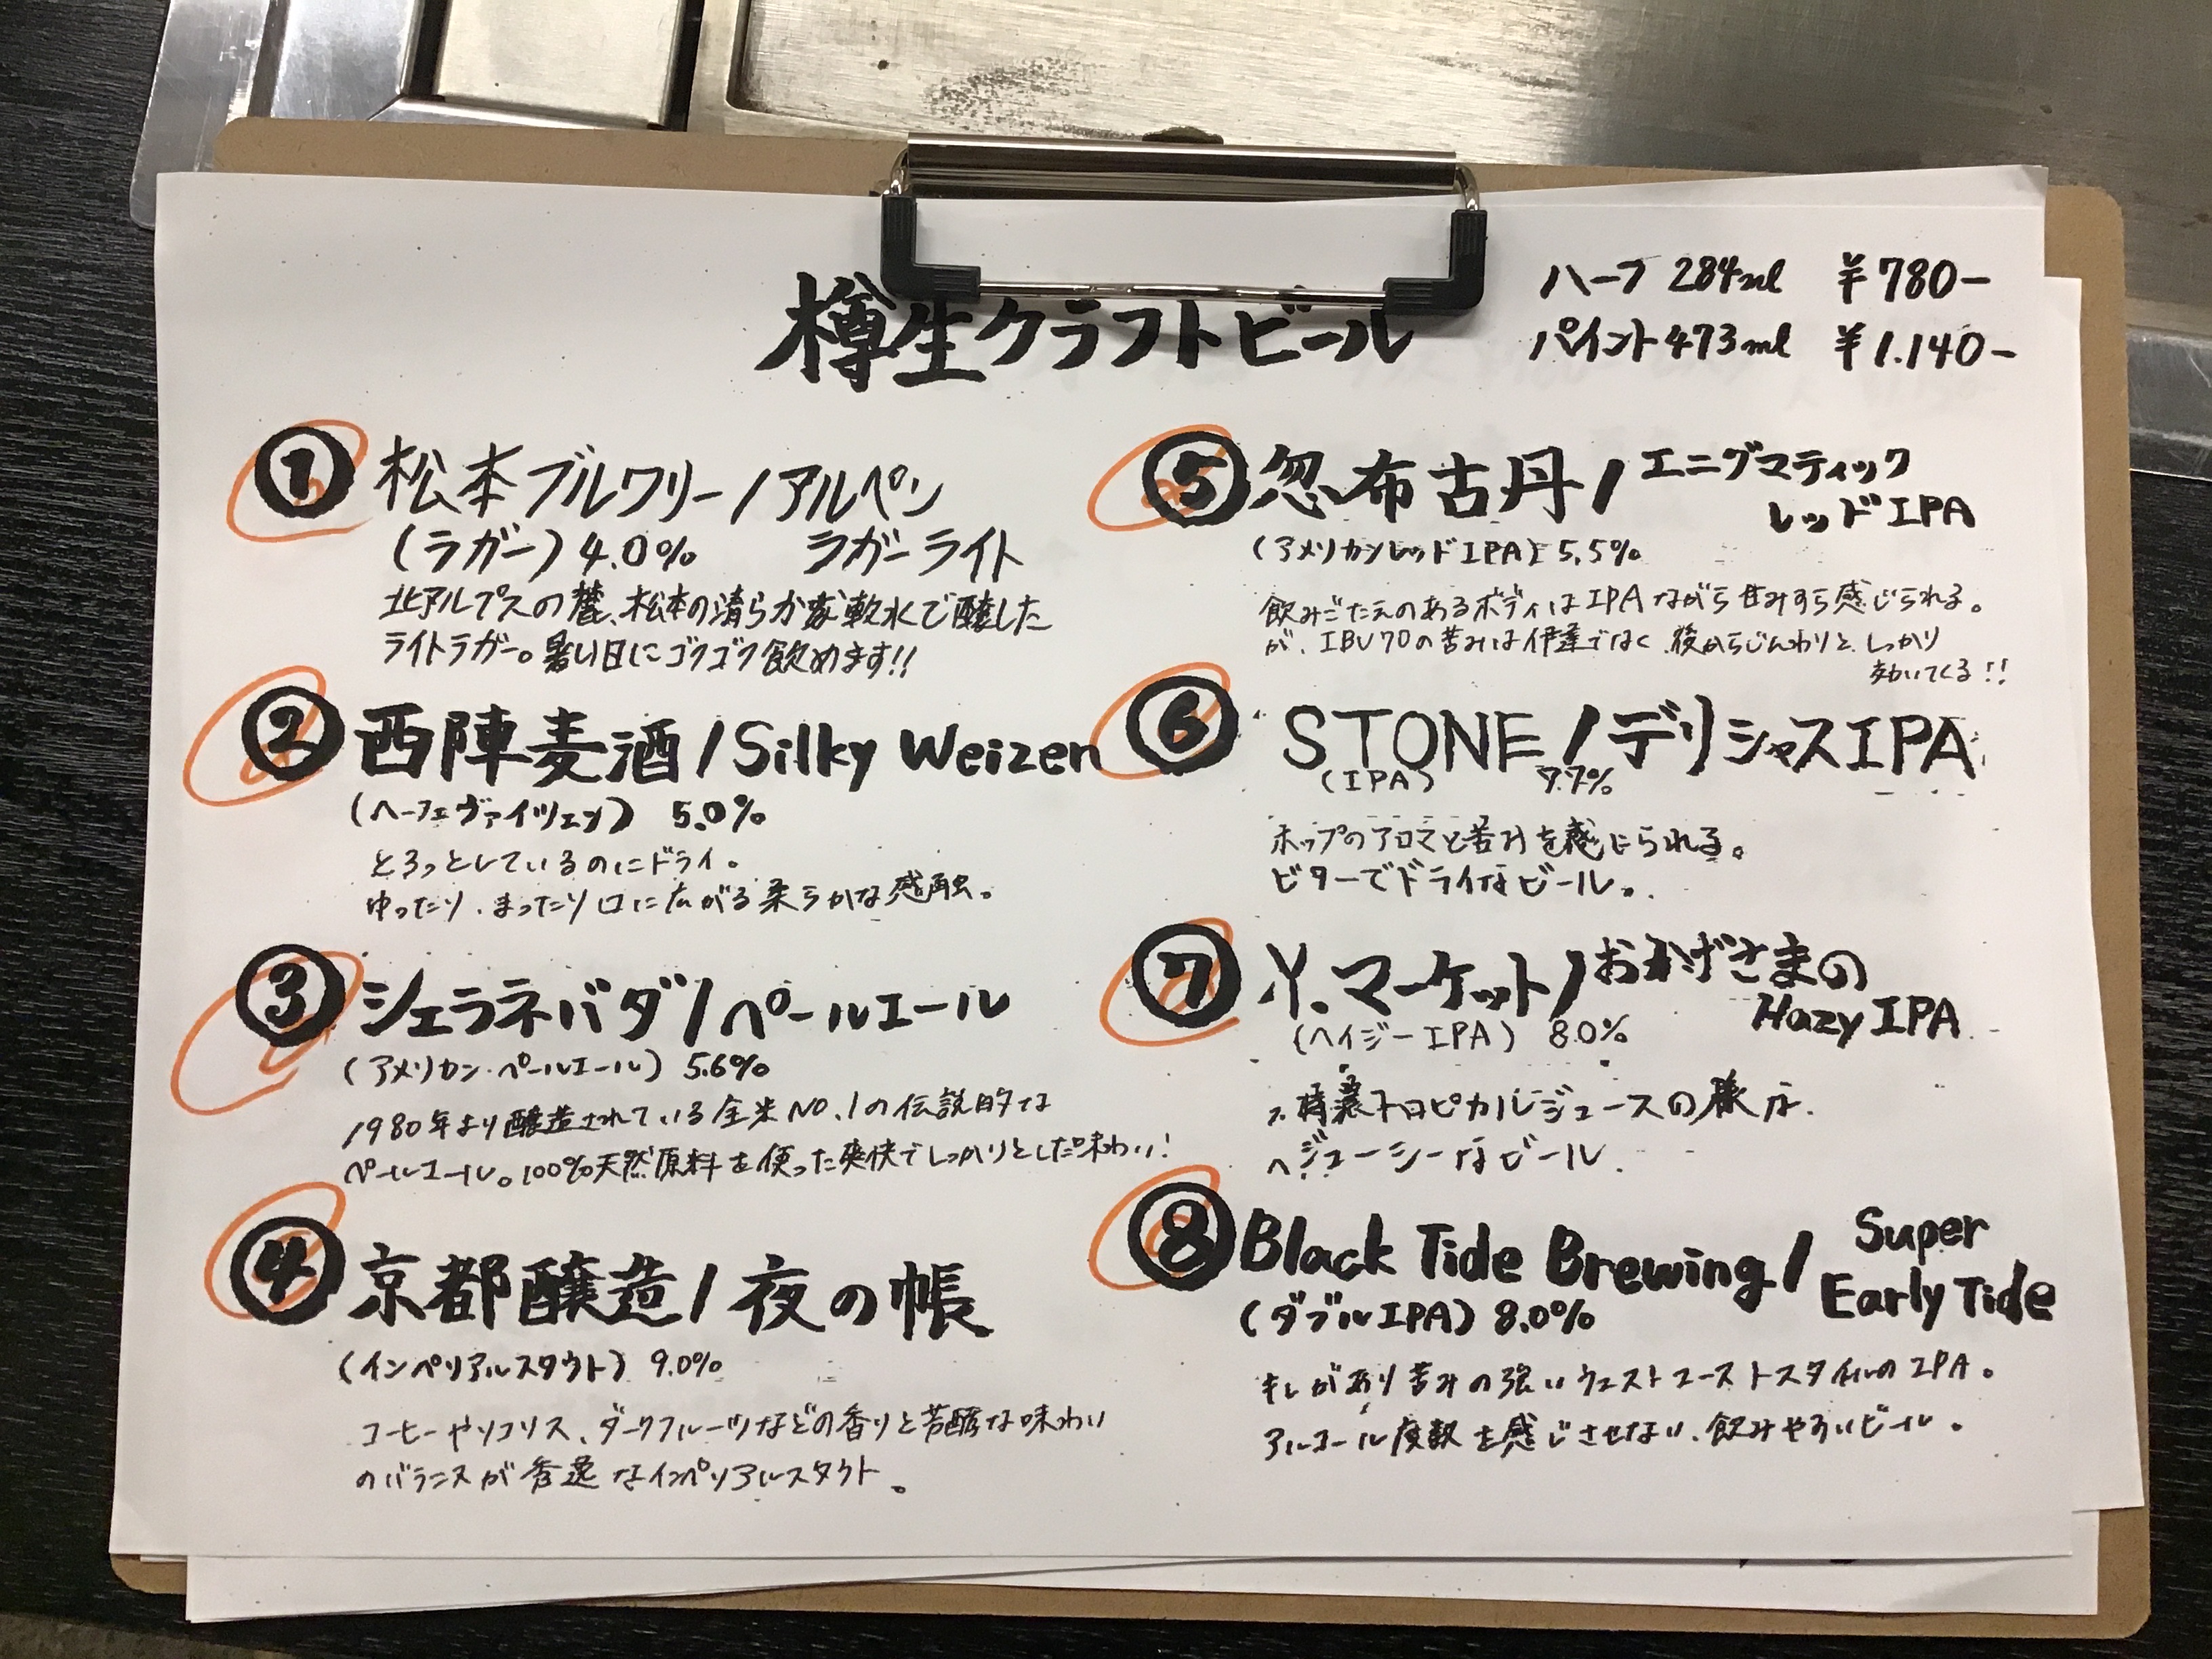 樽生クラフトビール
ハーフ 284ml ¥780-
パイント 473ml ¥1.140-
① 松本ブルワリー/アルペン
(ラガー) 4.0% ラガーライト
北アルプスの麓、松本の清らかな軟水で醸した
ライトラガー。暑い日にゴクゴク飲めます!!
② 西陣麦酒/Silky Weizen
(ヘーフェヴァイツェン) 5.0%
とろっとしているのにドライ。
ゆったり、まったり口に広がる柔らかな感触。
③ シエラネバダ/ペールエール
(アメリカン・ペールエール) 5.6%
1980年より醸造されている全米NO.1の伝説的な
ペールエール。100%天然原料を使った爽快でしっかりとした味わい!
④ 京都醸造/夜の帳
(インペリアルスタウト) 9.0%
コーヒーやリコリス、ダークフルーツなどの香りと芳醇な味わい
のバランスが秀逸なインペリアルスタウト。
⑤ 忽布古丹/エニグマティック
レッドIPA
(アメリカンレッドIPA) 5.5%
飲みごたえのあるボディはIPAながら甘みすら感じられる。
が、IBU70の苦みは伊達ではく、後からじんわりと、しっかり
効いてくる!!
⑥ STONE/デリシャスIPA
(IPA) 7.7%
ホップのアロマと苦みを感じられる。
ビターでドライなビール。
⑦ Y.マーケット/おかげさまの
Hazy IPA
(ヘイジーIPA) 8.0%
トロピカルジュースの様な、
ジューシーなビール.
⑧ Black Tide Brewing/Super
Early Tide
(ダブルIPA) 8.0%
キレがあり苦みの強いウェストコーストスタイルのIPA。
アルコール度数を感じさせない、飲みやすいビール。